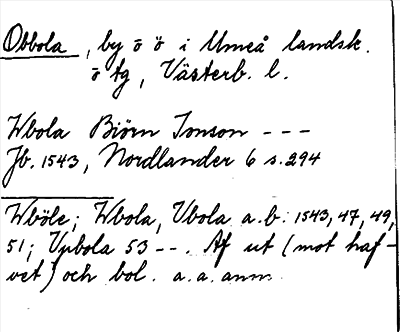 Obbola, by o ö i Umeå landsk.
o tg, Västerb. l.
Wbola Biörn Jonson ---
Jb. 1543, Nordlander 6 s. 294
Wböle; Wbola, Vbola a.b. 1543, 47, 49,
51; Vpbola 53 --. Af ut (mot haf-
vet) och bol. a. a. anm.